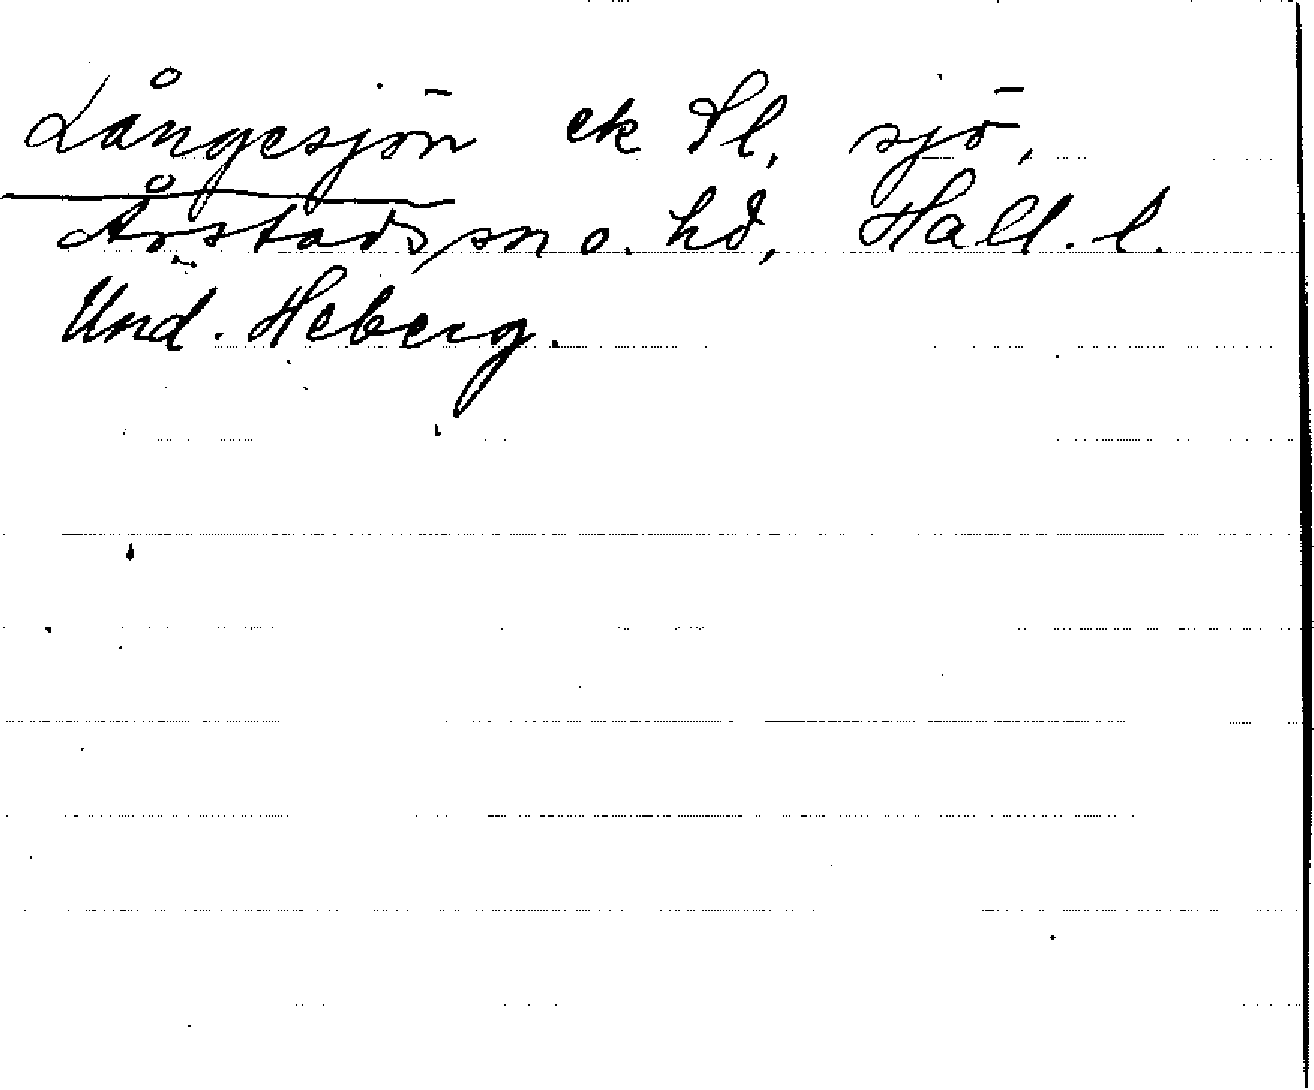 Långesjön ek Sl, sjö,
Årstads sn o. hd, Hall. l.
Und. Heberg.